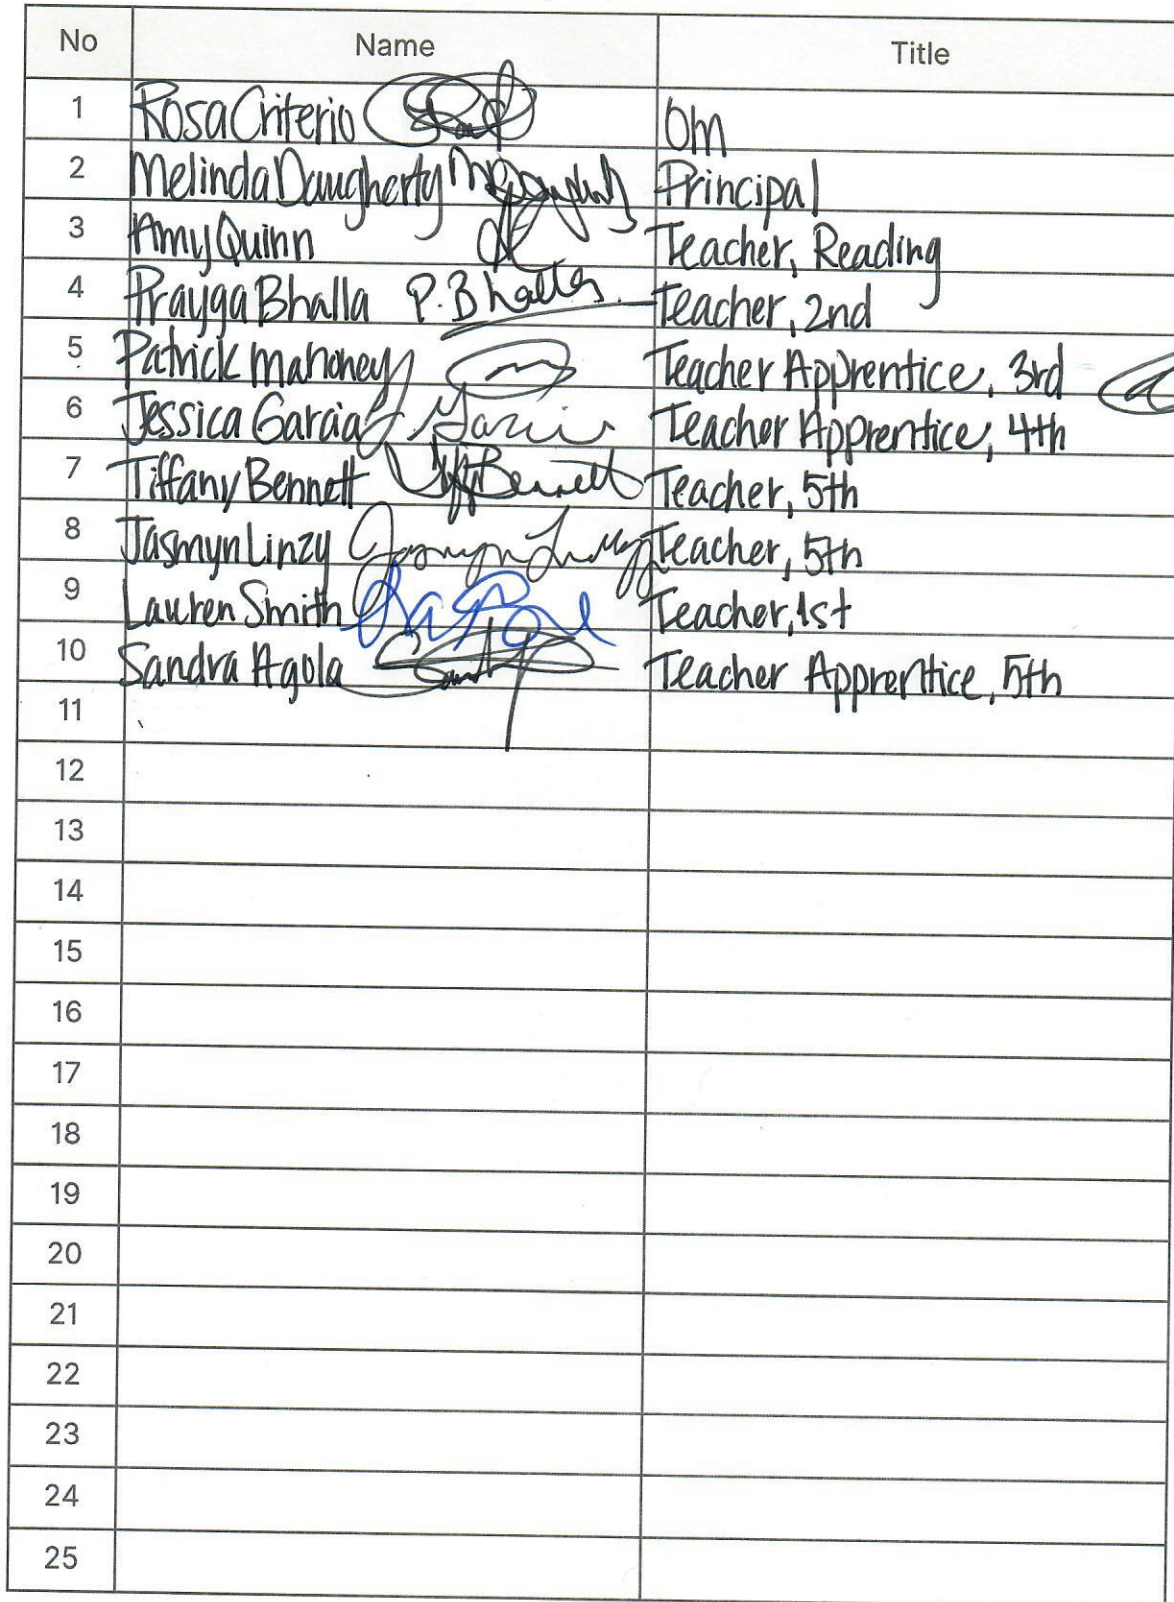 No Name Title
1 Rosa Criterio Om
2 Melinda Daugherty Principal
3 Amy Quinn Teacher, Reading
4 Prayga Bhalla P. Bhalla Teacher, 2nd
5 Patrick Mahoney Teacher Apprentice, 3rd
6 Jessica Garcia J Garcia Teacher Apprentice, 4th
7 Tiffany Bennett Tiff Bennett Teacher, 5th
8 Jasmyn Linzy Jasmyn Linzy Teacher, 5th
9 Lauren Smith Teacher, 1st
10 Sandra Agola Teacher Apprentice, 5th
11
12
13
14
15
16
17
18
19
20
21
22
23
24
25